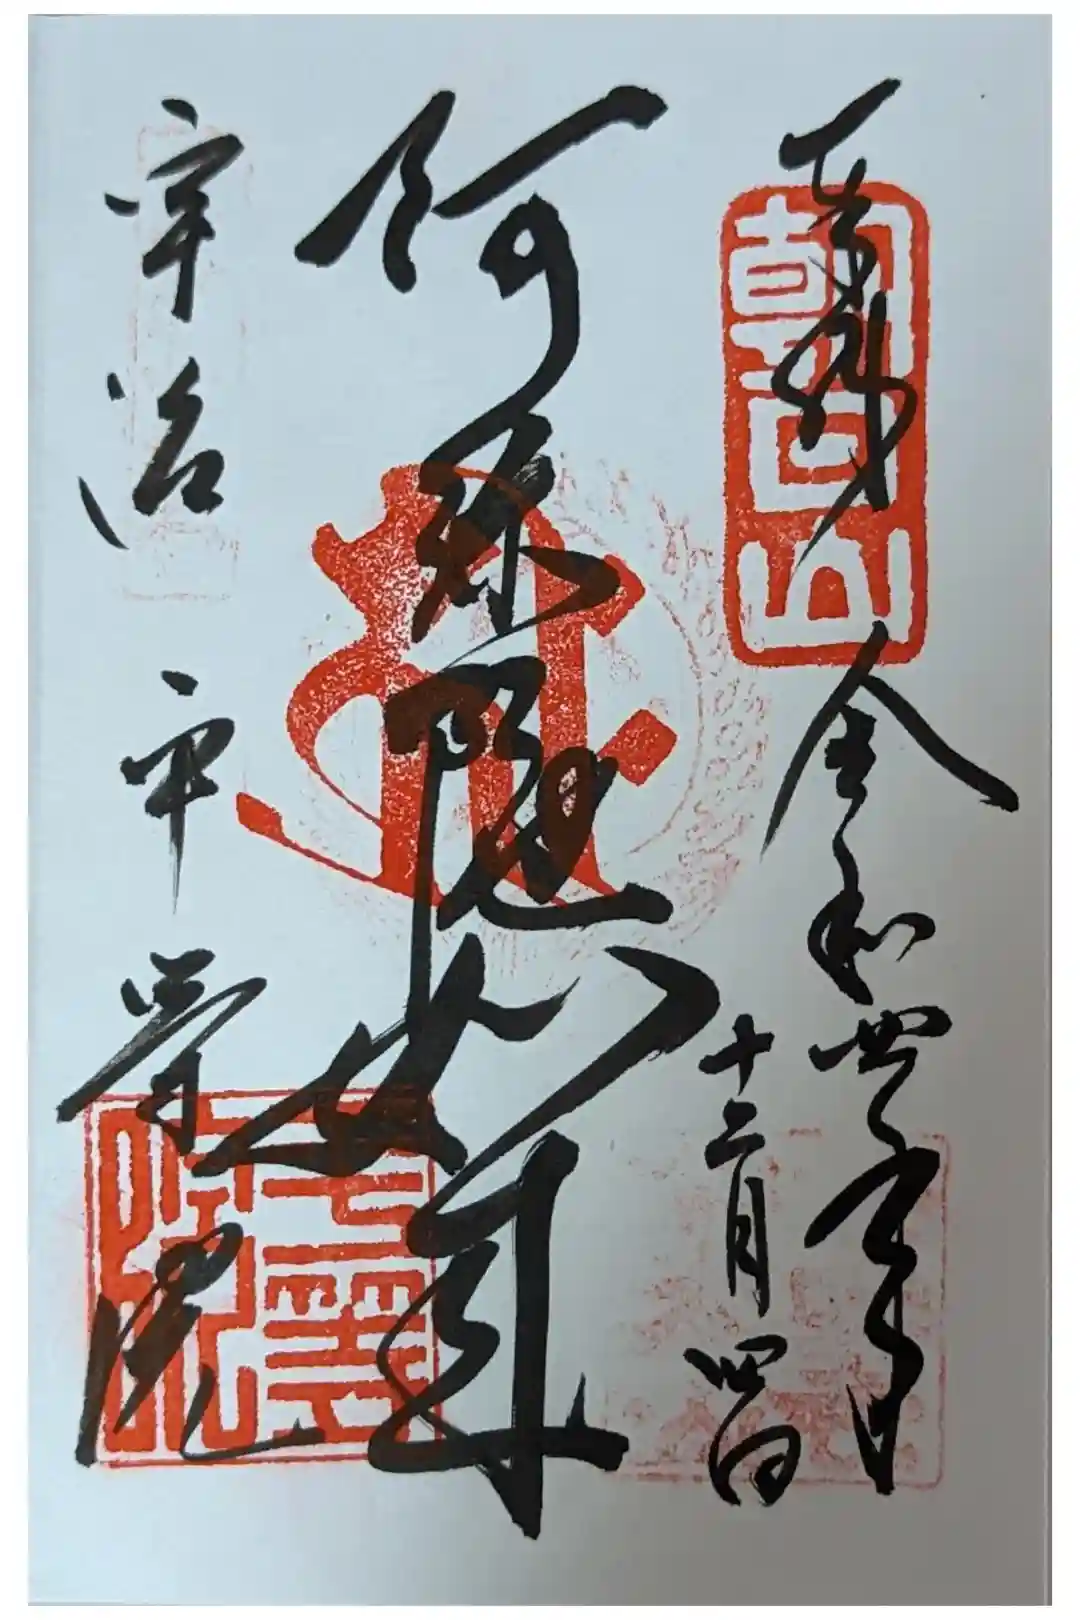 朝日山
奉拝 令和四年月日
十二月四日
阿弥陀如来
宇治 平等院